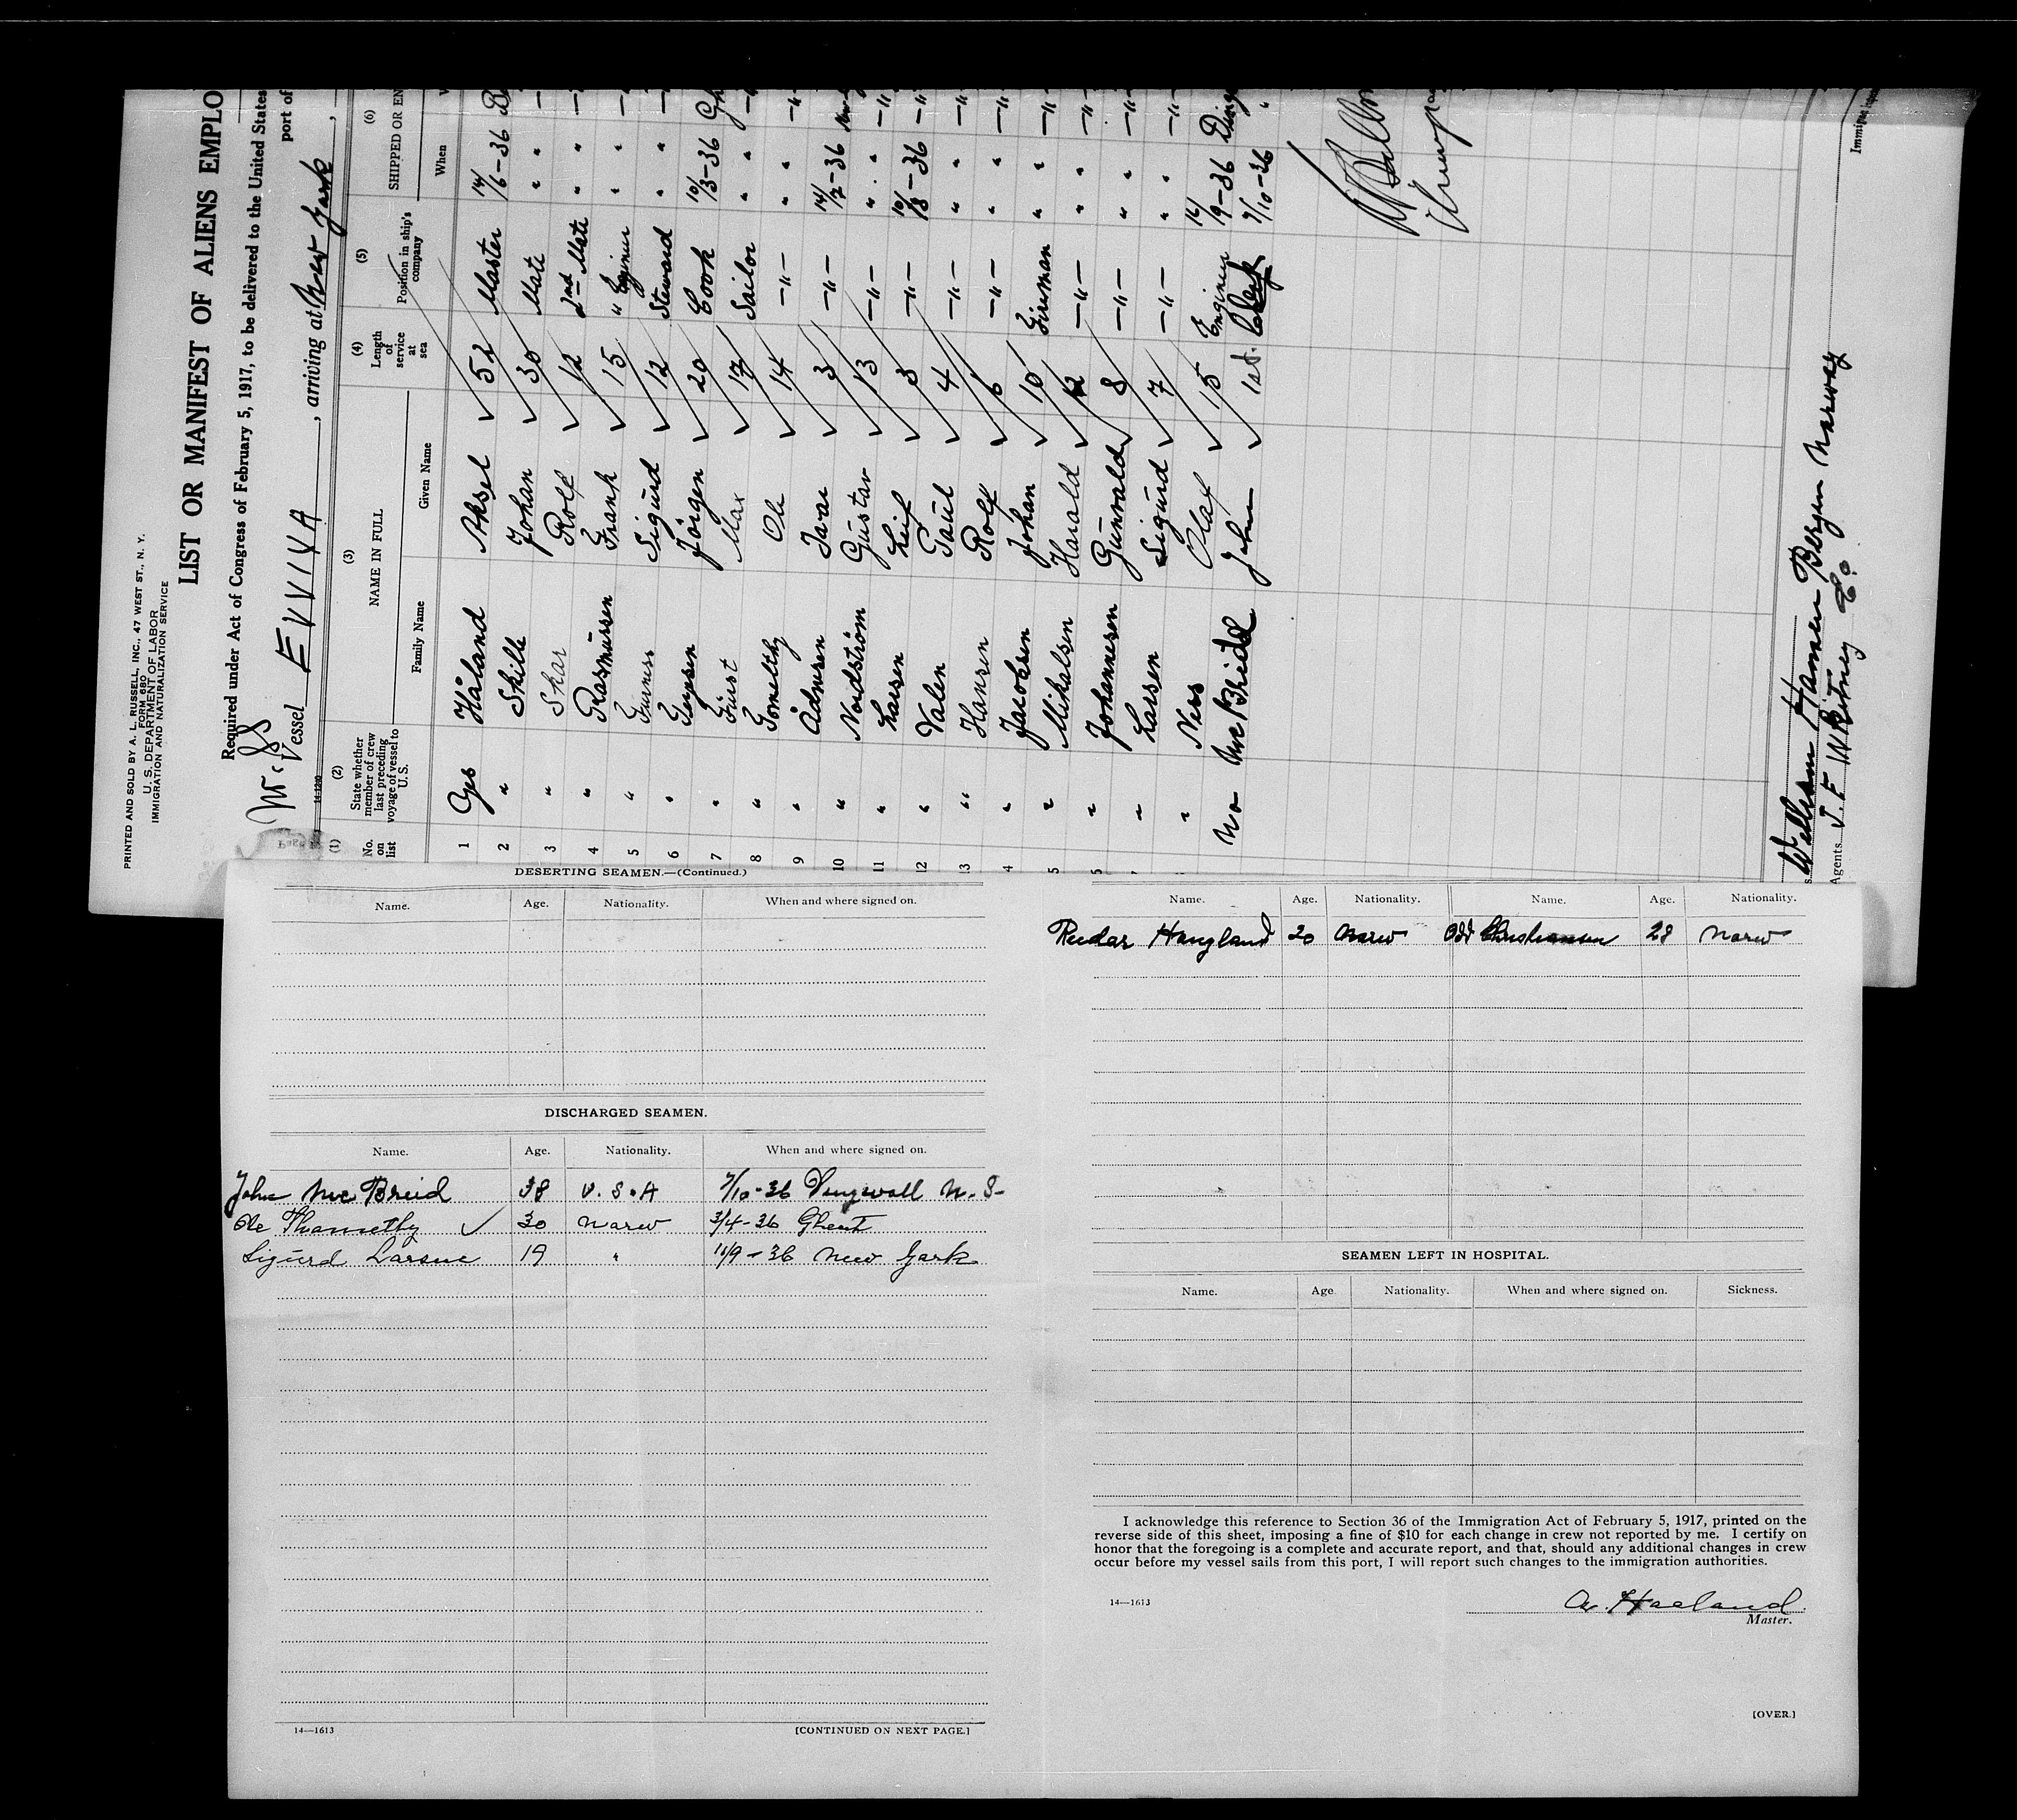 PRINTED AND SOLD BY A. L. RUSSELL, INC., 47 WEST ST., N. Y.
FORM 680
U. S. DEPARTMENT OF LABOR
IMMIGRATION AND NATURALIZATION SERVICE
LIST OR MANIFEST OF ALIENS EMPLO
Required under Act of Congress of February 5, 1917, to be delivered to the United States
port of
Vessel EVVIVA, arriving at New York,
14-1240
(1) (2) (3) (4) (5) (6)
No. on list
State whether member of crew last preceding voyage of vessel to U.S.
NAME IN FULL
Family Name Given Name
Length of service at sea
Position in ship's company
SHIPPED OR EN
When
1 Yes Håland Aksel 52 Master 14/6-36
2 " Skille Johan 30 Mate "
3 " Skar Rolf 12 2nd Mate "
4 " Rasmussen Frank 15 " Enginer "
5 " Sigurd 12 Steward "
6 " Jepsen Jörgen 20 Cook 10/3-36
7 " Fürst Max 17 Sailor "
8 " Tomethy Ole 14 -"- "
9 " Ådnesen Ivar 3 -"- 14/7-36
10 " Nordstrøm Gustav 13 -"- "
11 " Larsen Leif 3 -"- 10/8-36
12 " Valen Paul 4 -"- "
13 " Hansen Rolf 6 -"- "
4 " Jacobsen Johan 10 Fireman "
5 " Mikalsen Harald 12 -"- "
" Johannesen Gunvald 8 -"- "
" Larsen Sigurd 7 -"- "
" Ness Olaf 15 Enginer 16/9-36
No McBride John 1st. 7/10-36
William Hansen Bergen Norway
Agents J. F. Whitney Co.
DESERTING SEAMEN.—(Continued.)
Name. Age. Nationality. When and where signed on.
DISCHARGED SEAMEN.
Name. Age. Nationality. When and where signed on.
John Mc Breid 38 U.S.A 7/10-36 Dingwall N.S-
Ole Thomethy 30 Norw 3/4-36 Ghent
Sigurd Larsen 19 " 16/9-36 New York
14—1613 [CONTINUED ON NEXT PAGE.]
Name. Age. Nationality. Name. Age. Nationality.
Reidar Haugland 20 Norw Odd Christiansen 28 Norw
SEAMEN LEFT IN HOSPITAL.
Name. Age Nationality. When and where signed on. Sickness.
I acknowledge this reference to Section 36 of the Immigration Act of February 5, 1917, printed on the
reverse side of this sheet, imposing a fine of $10 for each change in crew not reported by me. I certify on
honor that the foregoing is a complete and accurate report, and that, should any additional changes in crew
occur before my vessel sails from this port, I will report such changes to the immigration authorities.
14—1613
A. Haaland.
Master.
[OVER.]